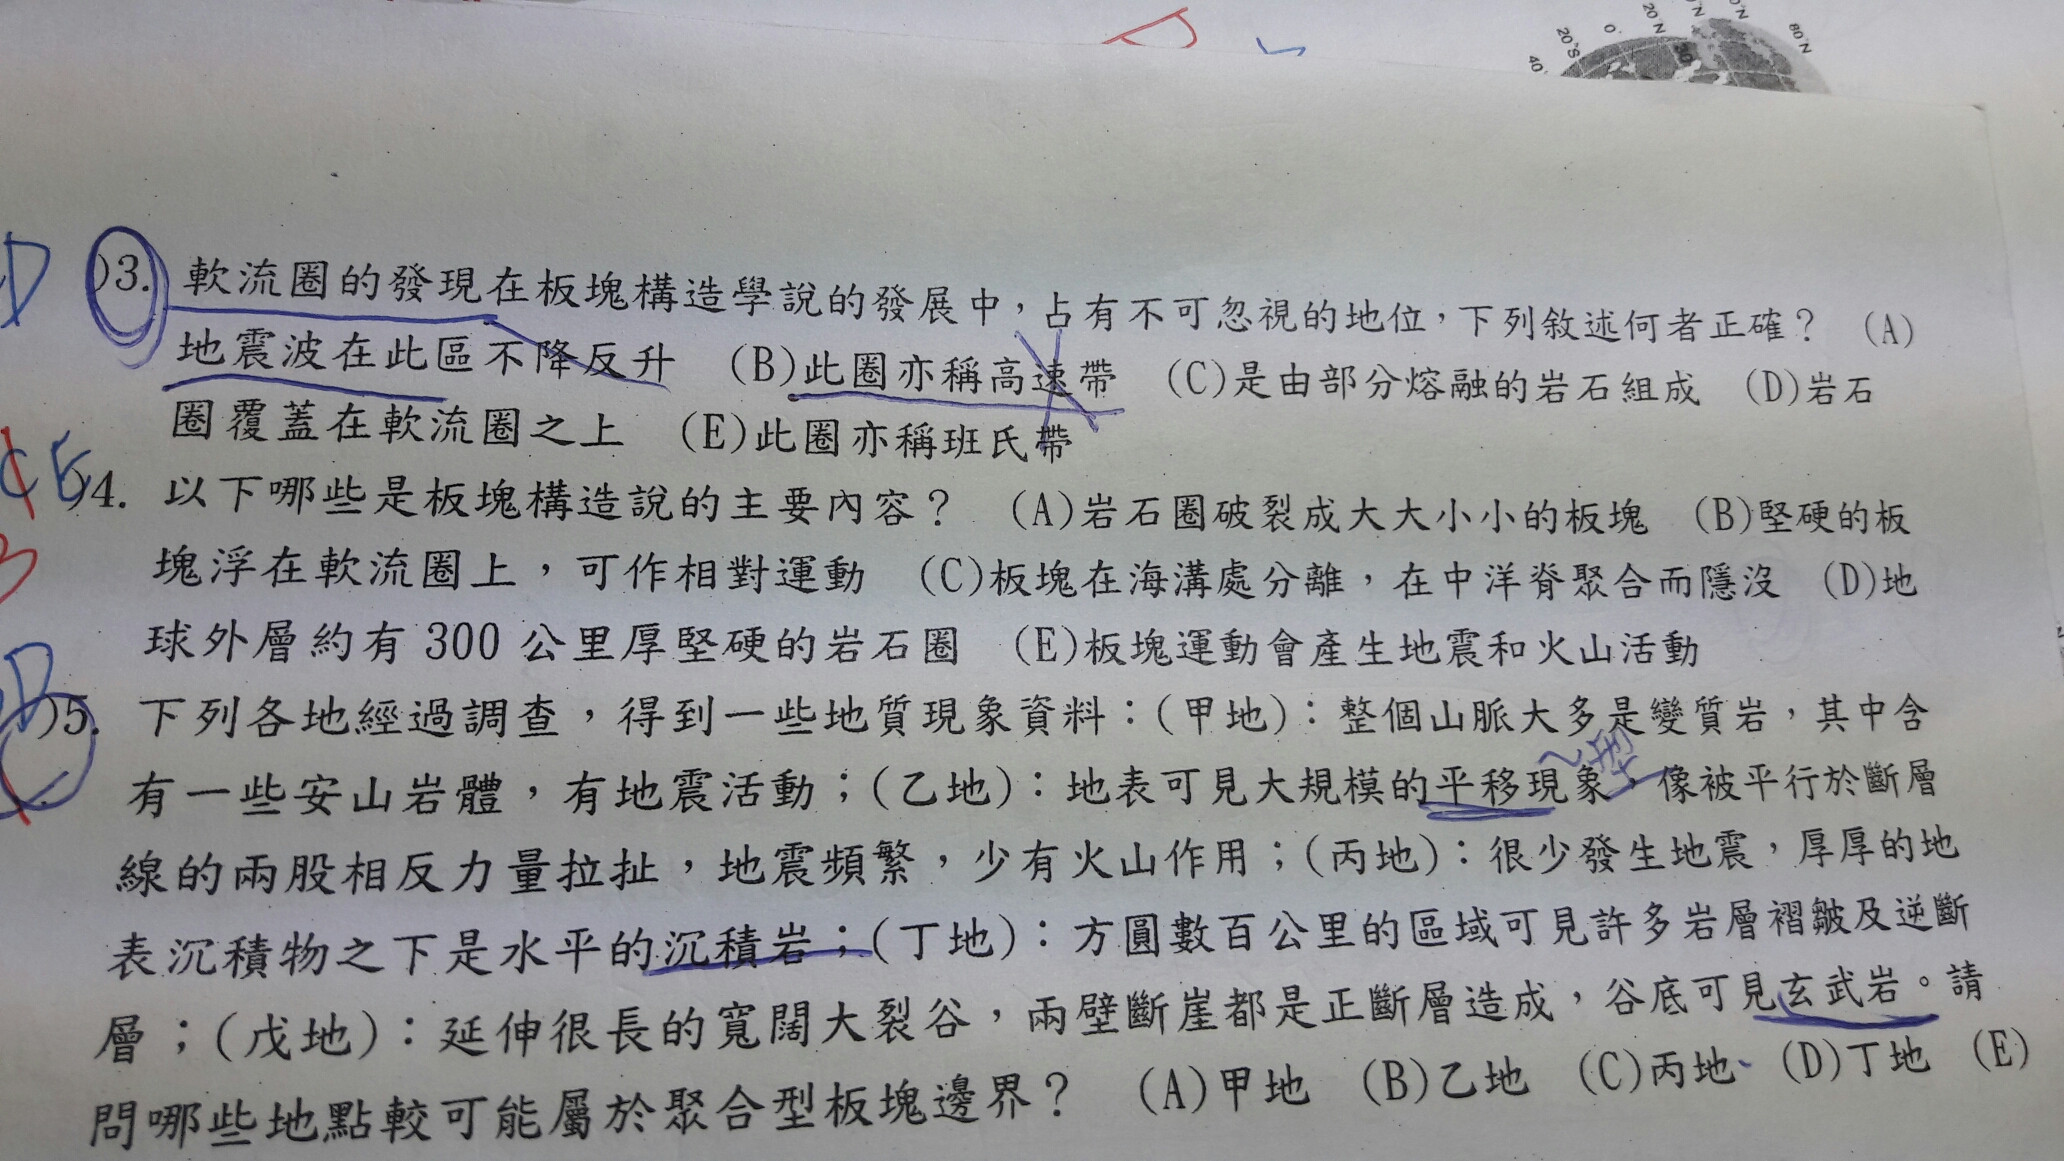 20°S 0° 20°N N N 80°N
40°
D )3. 軟流圈的發現在板塊構造學說的發展中，占有不可忽視的地位，下列敘述何者正確？ (A)
地震波在此區不降反升 (B)此圈亦稱高速帶 (C)是由部分熔融的岩石組成 (D)岩石
圈覆蓋在軟流圈之上 (E)此圈亦稱班氏帶
CE )4. 以下哪些是板塊構造說的主要內容？ (A)岩石圈破裂成大大小小的板塊 (B)堅硬的板
B 塊浮在軟流圈上，可作相對運動 (C)板塊在海溝處分離，在中洋脊聚合而隱沒 (D)地
球外層約有 300 公里厚堅硬的岩石圈 (E)板塊運動會產生地震和火山活動
D )5. 下列各地經過調查，得到一些地質現象資料：(甲地)：整個山脈大多是變質岩，其中含
型
有一些安山岩體，有地震活動；(乙地)：地表可見大規模的平移現象，像被平行於斷層
線的兩股相反力量拉扯，地震頻繁，少有火山作用；(丙地)：很少發生地震，厚厚的地
表沉積物之下是水平的沉積岩；(丁地)：方圓數百公里的區域可見許多岩層褶皺及逆斷
層；(戊地)：延伸很長的寬闊大裂谷，兩壁斷崖都是正斷層造成，谷底可見玄武岩。請
問哪些地點較可能屬於聚合型板塊邊界？ (A)甲地 (B)乙地 (C)丙地 (D)丁地 (E)